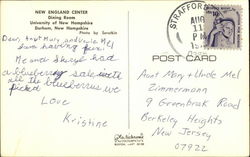 NEW ENGLAND CENTER
Dining Room
University of New Hampshire
Durham, New Hampshire
Photo by
Dear Aunt Mary and Uncle Mel
having fun!
Me and Sheryl had
a blueberry sale with
all the blueberries we
picked
Love
Kristine
STRAFFORD
AUG
11
PM
POST CARD
Aunt Mary + Uncle Mel
Zimmermann
9 Greenbrook Road
Berkeley Heights
New Jersey
07922